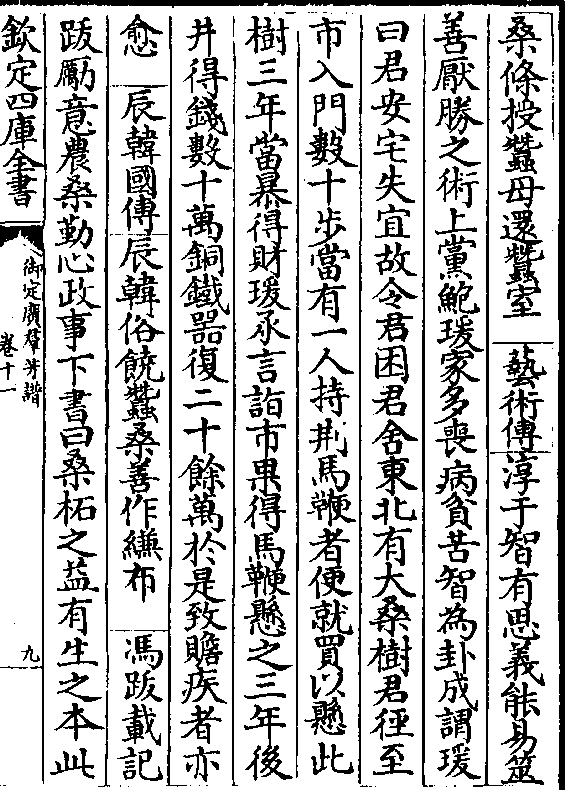 桑條授蠶母還蠶室　藝術傳淳于智有思義能易筮
善厭勝之術上黨鮑瑗家多喪病貧苦智為卦成謂瑗
曰君安宅失宜故令君困君舍東北有大桑樹君徑至
市入門數十步當有一人持荆馬鞭者便就買以懸此
樹三年當暴得財瑗承言詣市果得馬鞭懸之三年後
井得錢數十萬銅鐵器復二十餘萬於是致贍疾者亦
愈　辰韓國傳辰韓俗饒蠶桑善作縑布　馮跋載記
跋勵意農桑勤心政事下書曰桑柘之益有生之本此
欽定四庫全書
御定廣羣芳譜
卷十一
九